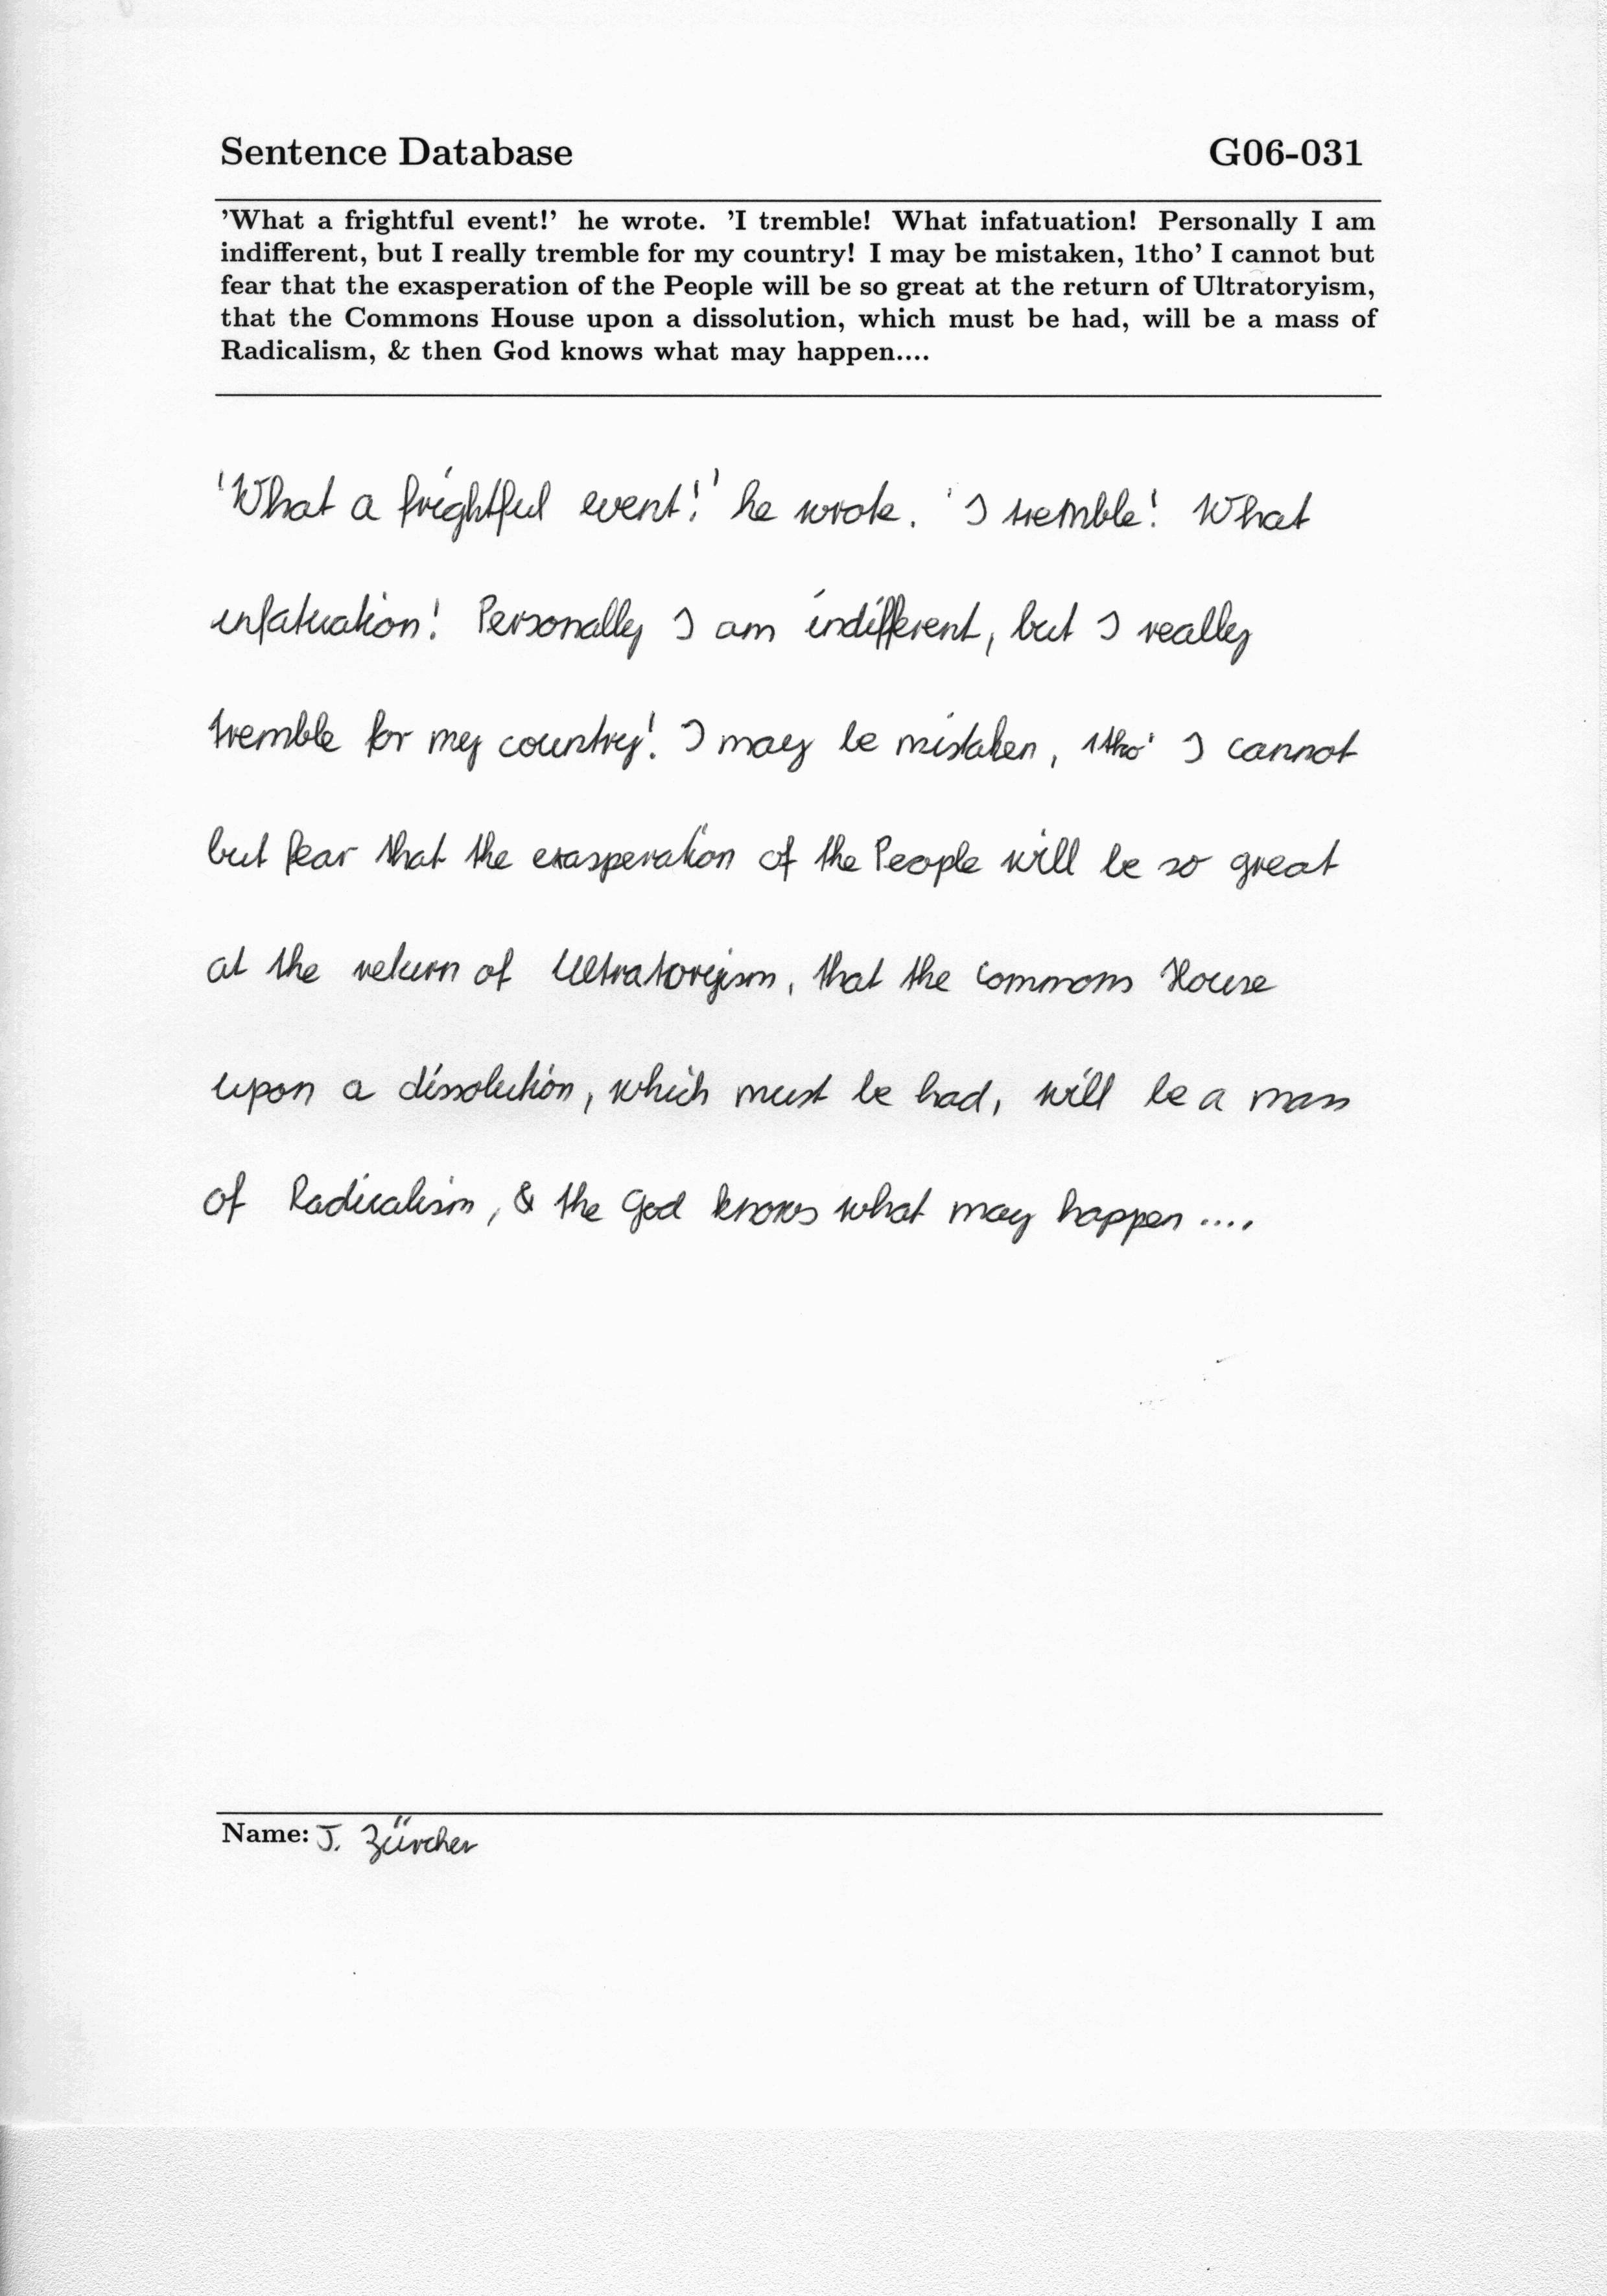 Sentence Database G06-031
'What a frightful event!' he wrote. 'I tremble! What infatuation! Personally I am
indifferent, but I really tremble for my country! I may be mistaken, 1tho' I cannot but
fear that the exasperation of the People will be so great at the return of Ultratoryism,
that the Commons House upon a dissolution, which must be had, will be a mass of
Radicalism, & then God knows what may happen....
'What a frightful event!' he wrote. 'I tremble! What
infatuation! Personally I am indifferent, but I really
tremble for my country! I may be mistaken, 1tho' I cannot
but fear that the exasperation of the People will be so great
at the return of Ultratoryism, that the Commons House
upon a dissolution, which must be had, will be a mass
of Radicalism, & the God knows what may happen....
Name: J. Zürcher